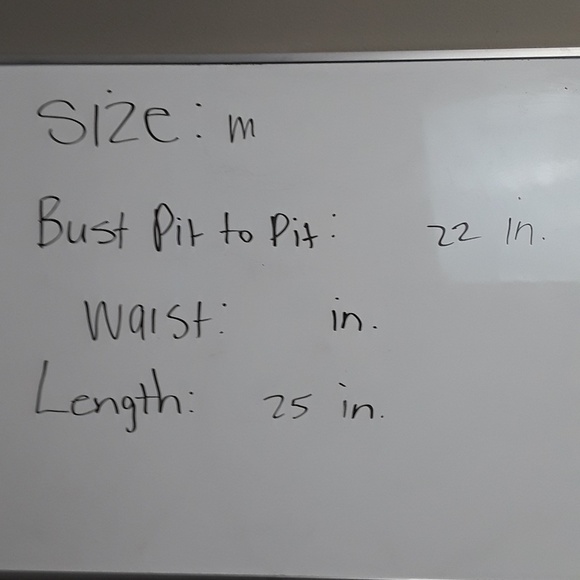 Size: m
Bust Pit to Pit: 22 in.
Waist: in.
Length: 25 in.